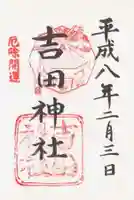 平成八年二月三日
吉田神社
厄除開運